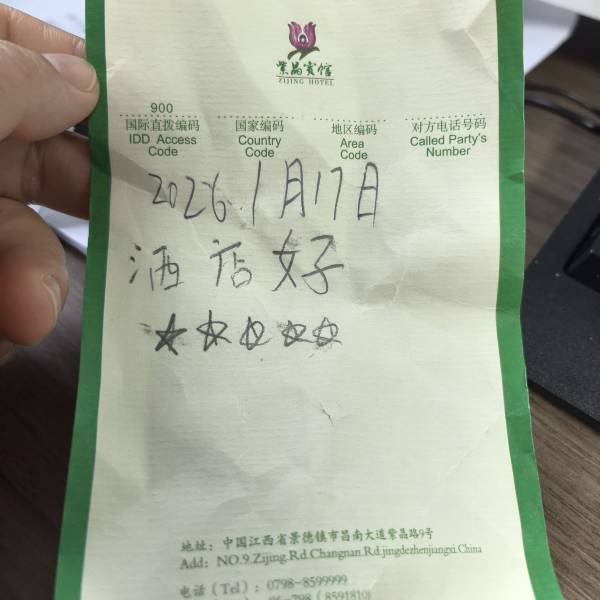 紫晶宾馆
ZIJING HOTEL
900
国际直拨编码 国家编码 地区编码 对方电话号码
IDD Access Code Country Code Area Code Called Party's Number
2026.1月17日
洒店好
☆☆☆☆☆
地址:中国江西省景德镇市昌南大道紫晶路9号
Add: NO.9.Zijing.Rd.Changnan.Rd.jingdezhenjiangxi.China
电话(Tel):0798-8599999